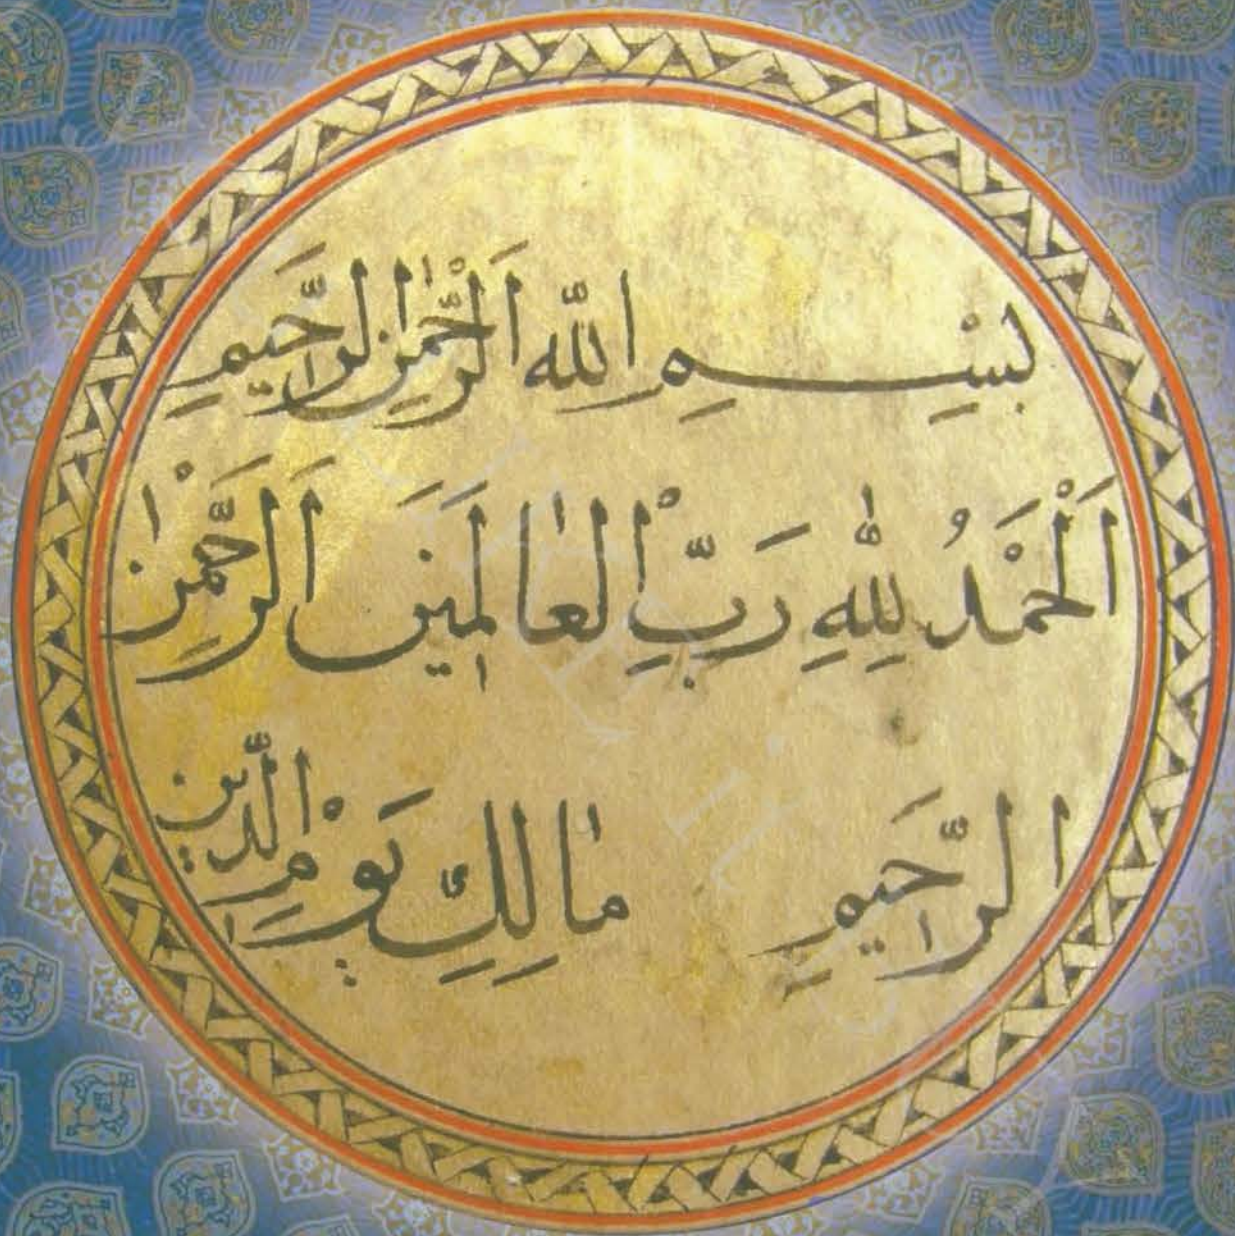 بِسْمِ اللّٰهِ الرَّحْمٰنِ الرَّحيمِ
اَلْحَمْدُ لِلّٰهِ رَبِّ الْعٰالَمينَ اَلرَّحْمٰنِ
الرَّحيمِ مٰالِكِ يَوْمِ الدّينِ